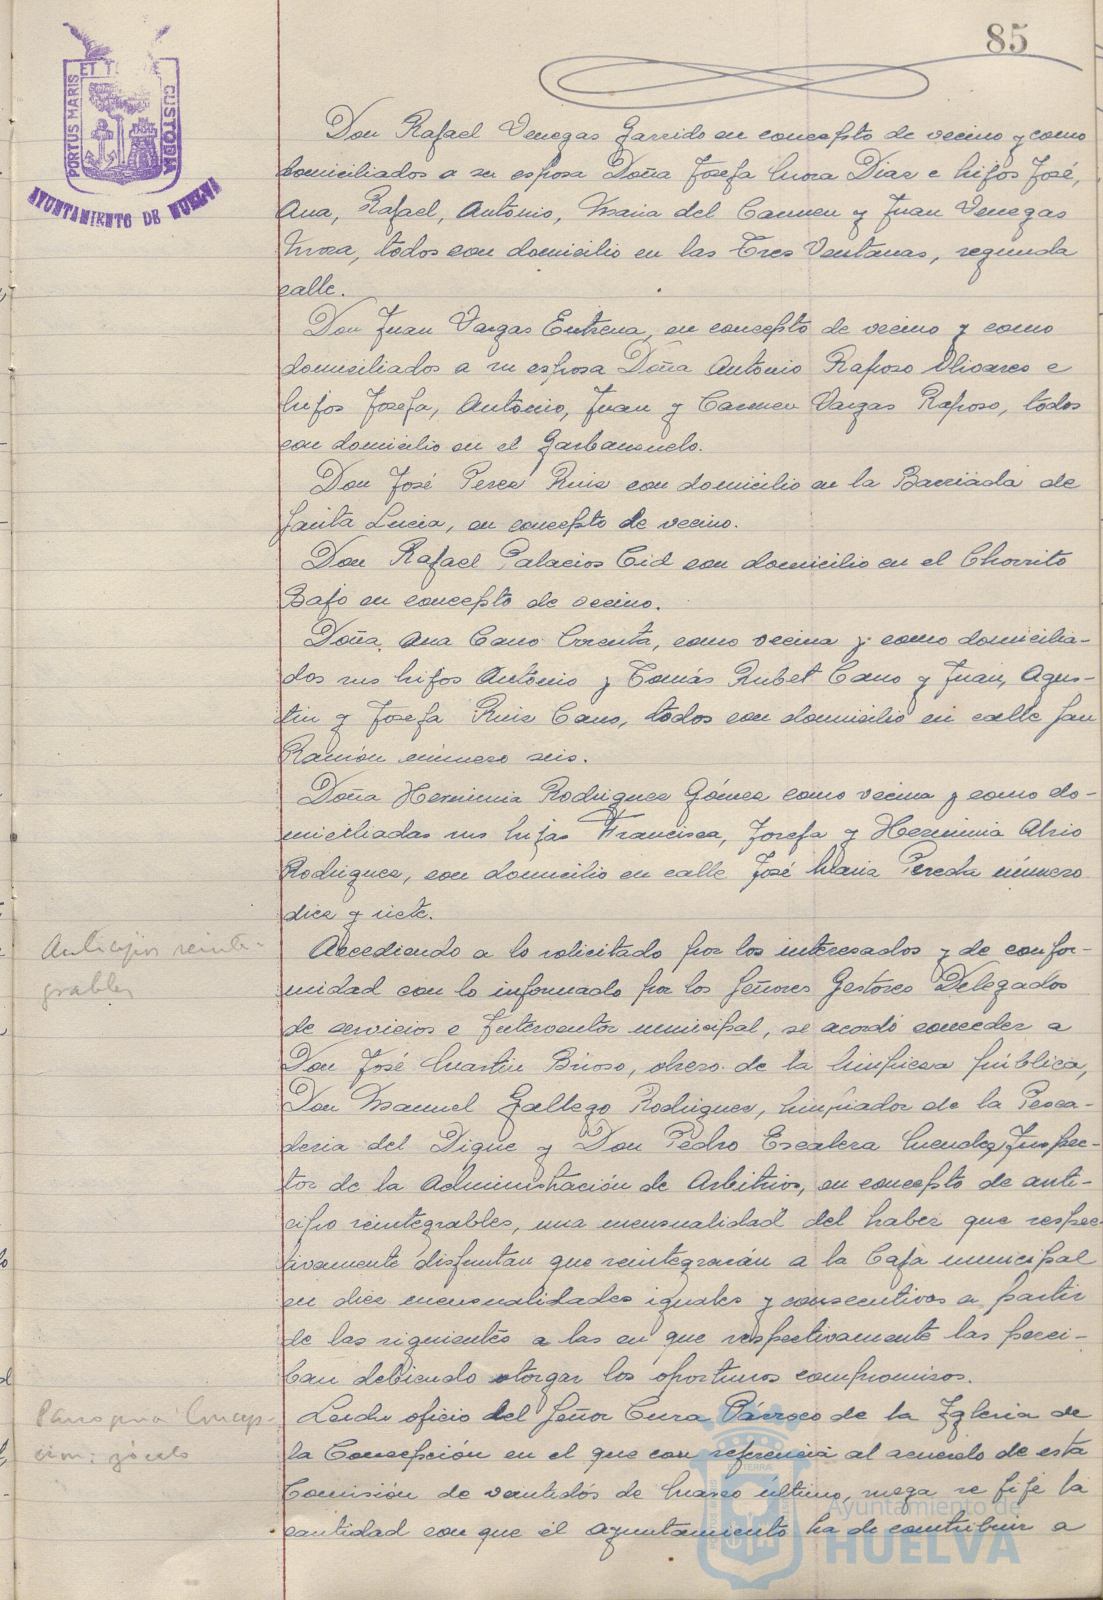 85
PORTUS MARIS ET TERRE CUSTODIA
AYUNTAMIENTO DE HUELVA
Don Rafael Venegas Garrido en concepto de vecino y como
domiciliados a su esposa Doña Josefa Mora Diaz e hijos José,
Ana, Rafael, Antonio, Maria del Carmen y Juan Venegas
Mora, todos con domicilio en las Tres Ventanas, segunda
calle.
Don Juan Vargas Entrena, en concepto de vecino y como
domiciliados a su esposa Doña Antonio Raposo Olivares e
hijos Josefa, Antonio, Juan y Carmen Vargas Raposo, todos
con domicilio en el Garbansuelo.
Don José Perez Ruiz con domicilio en la Barriada de
Santa Lucia, en concepto de vecino.
Don Rafael Palacios Cid con domicilio en el Chorrito
Bajo en concepto de vecino.
Doña Ana Cano, como vecina y como domicilia-
dos sus hijos Antonio y Tomás Rubet Cano y Juan, Agus-
tin y Josefa Ruiz Cano, todos con domicilio en calle San
Ramón número seis.
Doña Herminia Rodriguez Gómez como vecina y como do-
miciliadas sus hijas Francisca, Josefa y Herminia
Rodriguez, con domicilio en calle José Maria Pereda número
diez y siete.
Anticipos reinte-
grables
Accediendo a lo solicitado por los interesados y de confor-
midad con lo informado por los Señores Gestores Delegados
de servicios e Interventor municipal, se acordó conceder a
Don José Martin Brioso, obrero de la limpieza pública,
Don Manuel Gallego Rodriguez, limpiador de la Pesca-
deria del Dique y Don Pedro Escalera Mendez, Inspec-
tor de la Administración de Arbitrios, en concepto de anti-
cipo reintegrables, una mensualidad del haber que respec-
tivamente disfrutan que reintegrarán a la Caja municipal
en diez mensualidades iguales y consecutivas a partir
de las siguientes a las en que respectivamente las perci-
ban debiendo otorgar los oportunos compromisos.
Parroquia Concep-
ción: zócalo
Leido oficio del Señor Cura Párroco de la Iglesia de
la Concepción en el que con referencia al acuerdo de esta
Comisión de ventidós de Marzo último, ruega se fije la
cantidad con que el Ayuntamiento ha de contribuir a
Ayuntamiento de
HUELVA